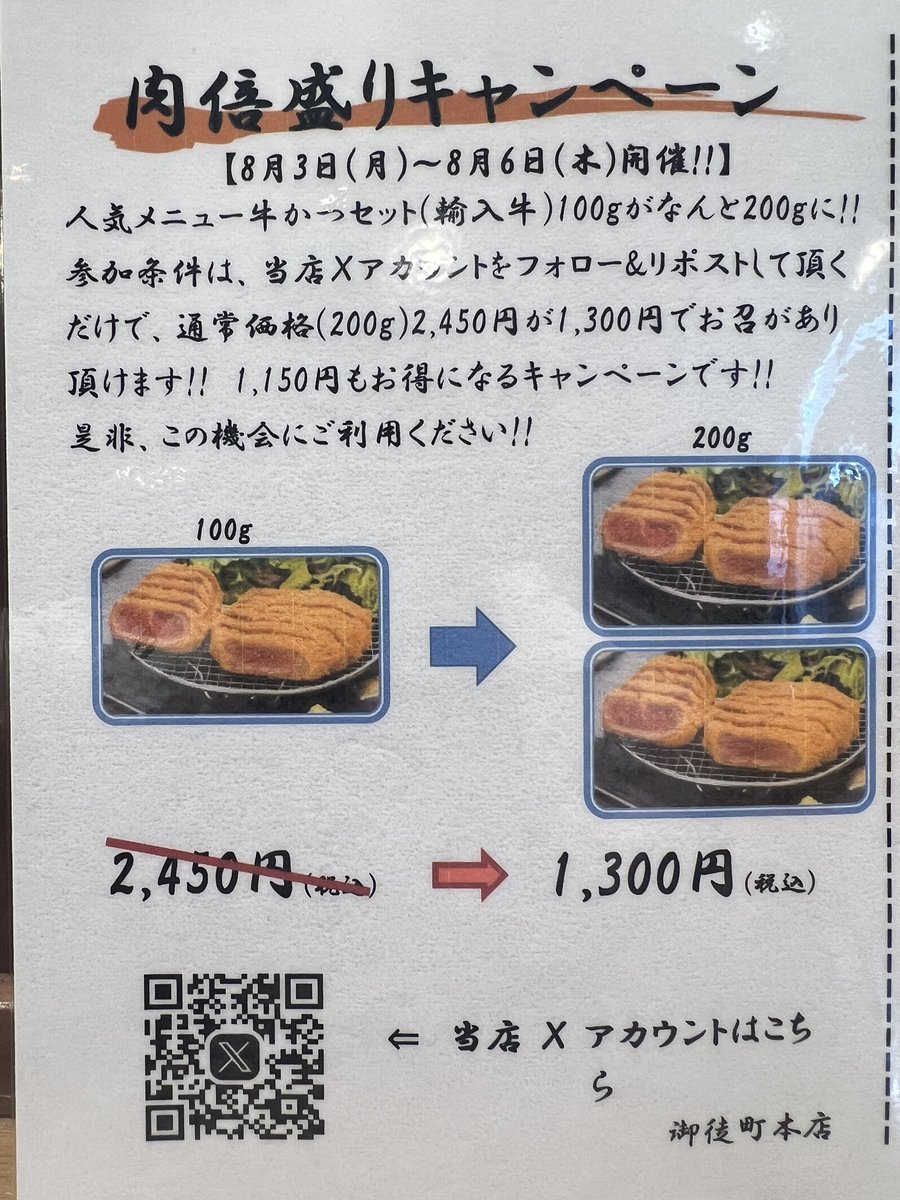 肉倍盛りキャンペーン
【8月3日(月)～8月6日(木)開催!!】
人気メニュー牛かつセット(輸入牛)100gがなんと200gに!!
参加条件は、当店Xアカウントをフォロー&リポストして頂く
だけで、通常価格(200g)2,450円が1,300円でお召があり
頂けます!! 1,150円もお得になるキャンペーンです!!
是非、この機会にご利用ください!!
200g
100g
2,450円(税込)
1,300円(税込)
⇐ 当店 X アカウントはこち
ら
御徒町本店